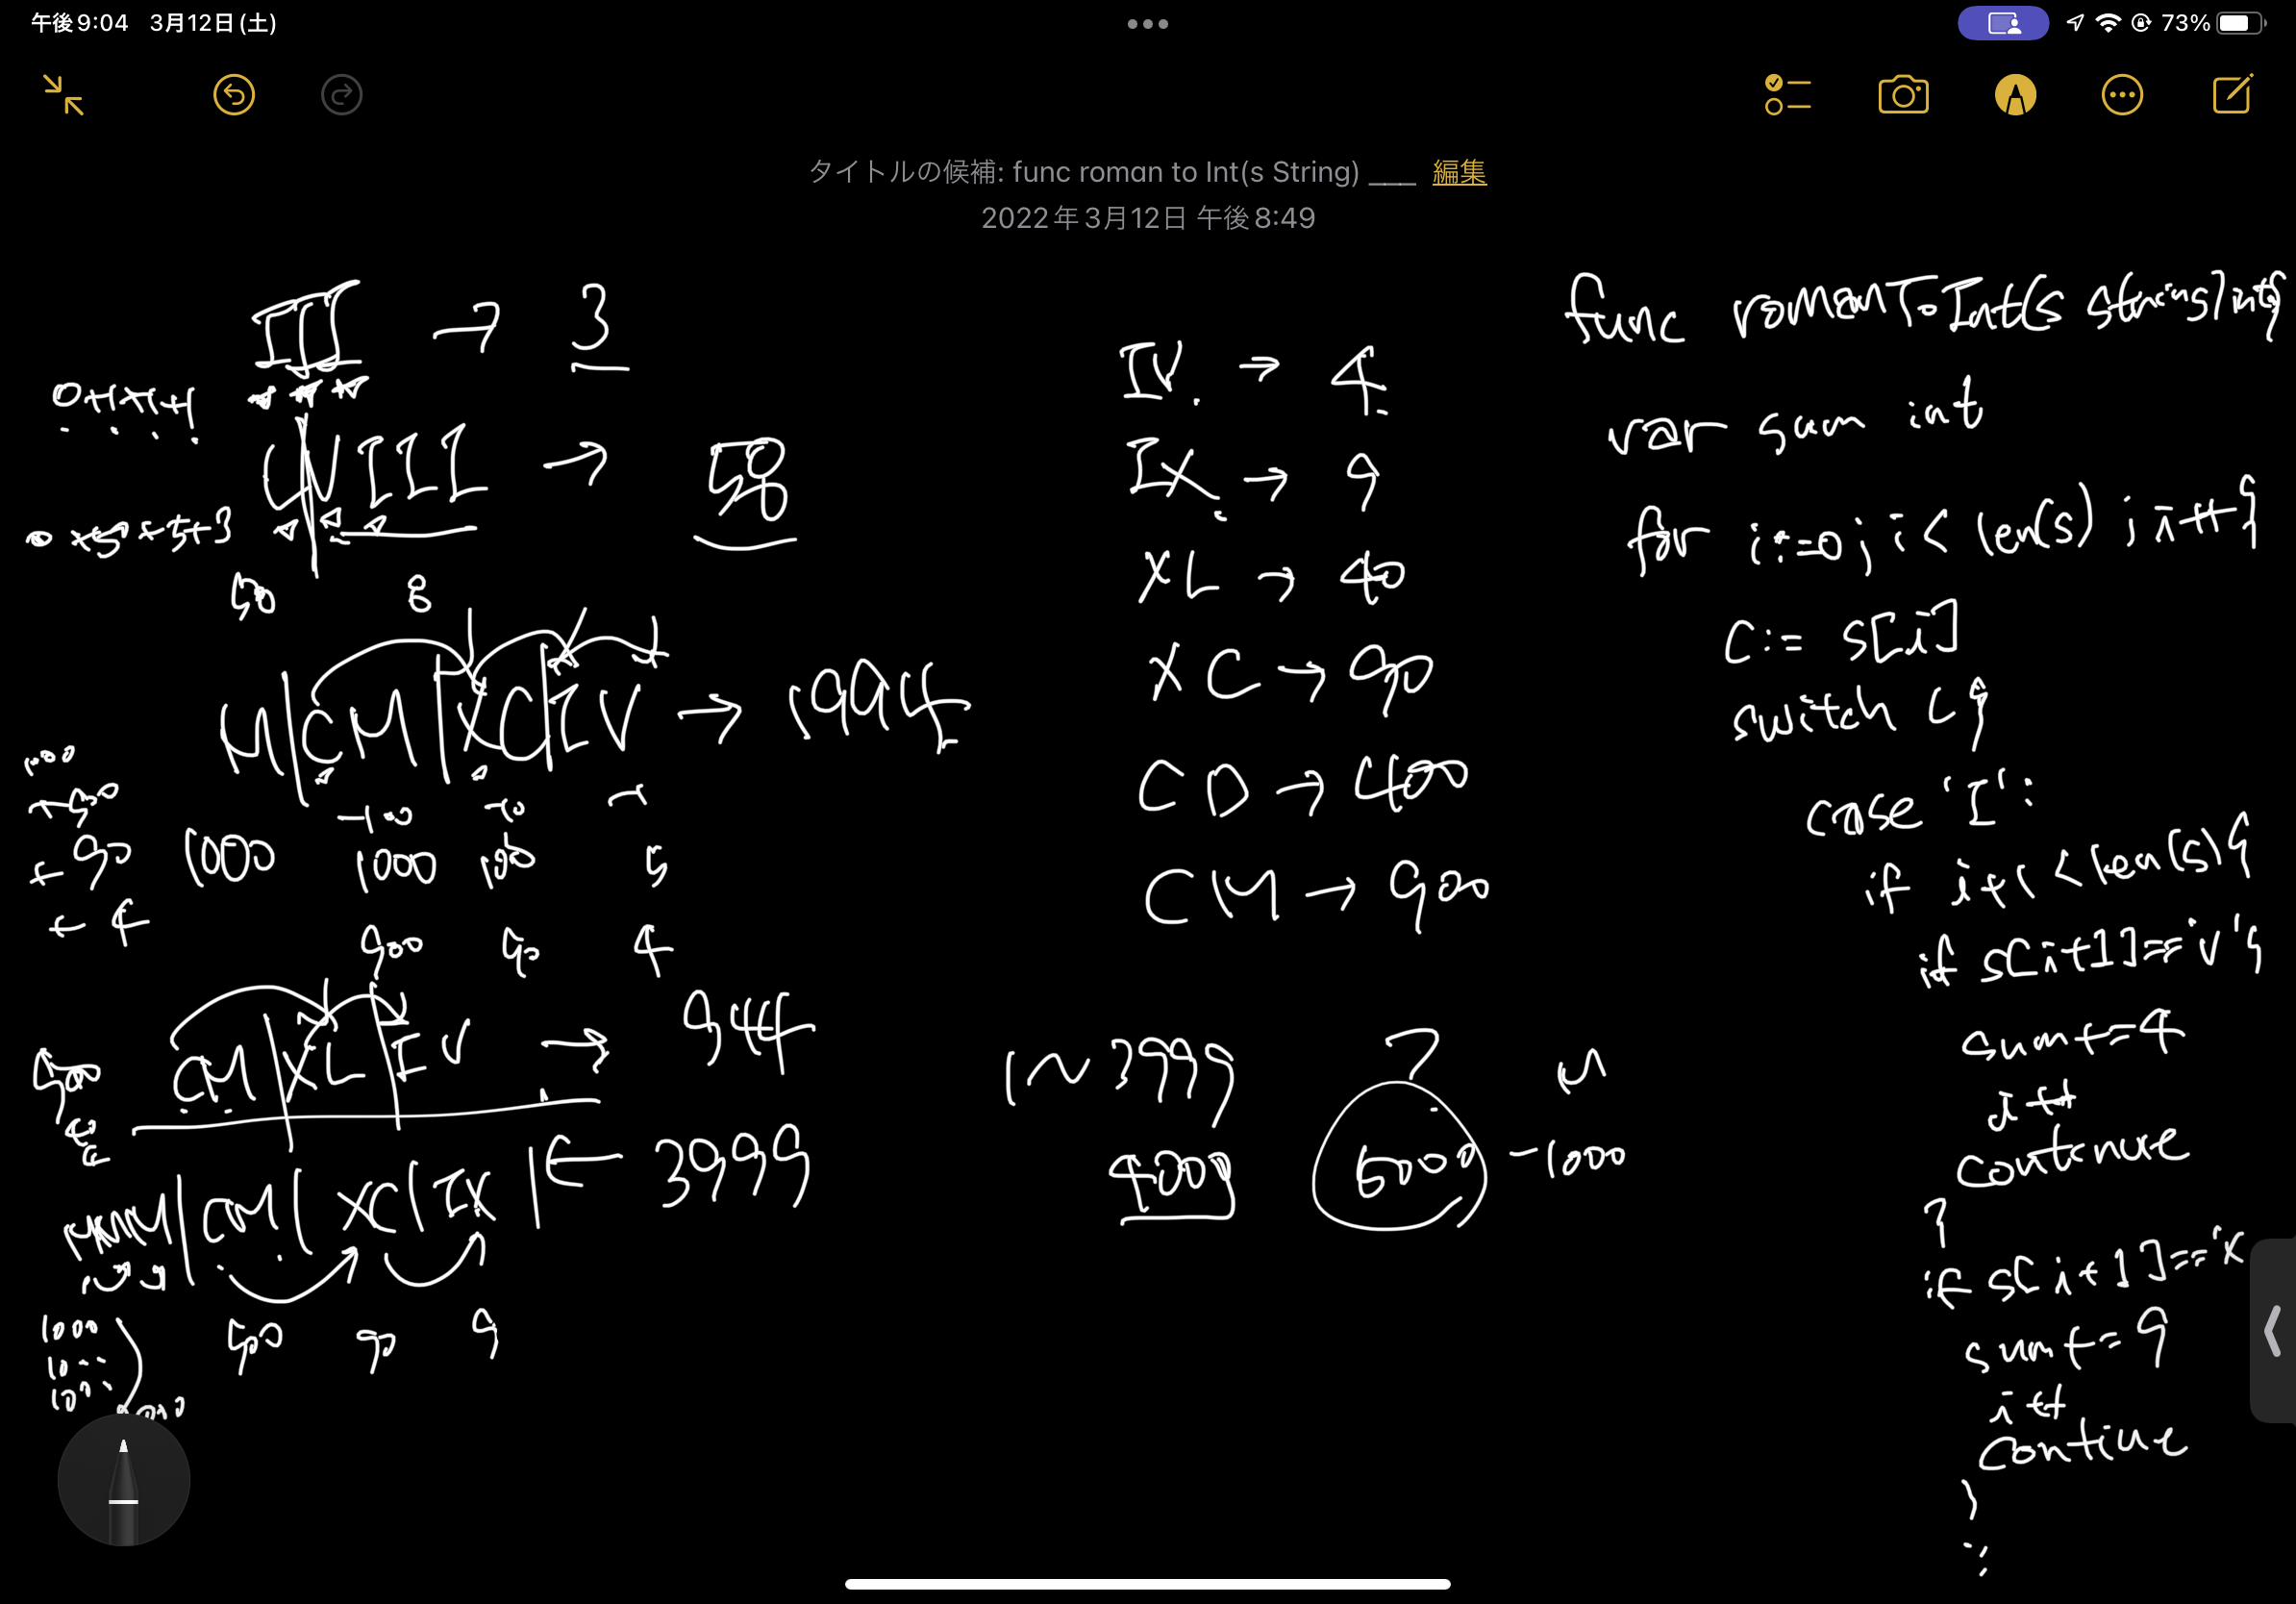 午後9:04 3月12日(土)
73%
タイトルの候補: func roman to Int(s String) ___ 編集
2022年3月12日 午後8:49
III → 3
0+1+1+1
LVIII → 58
0+50+5+3
50 8
M|CM|XC|IV → 1994
1000
+900
+90
+4
-100 -10 -1
1000 1000 100 5
900 90 4
CM|XL|IV → 944
900
MMM|CM|XC|IX| ← 3999
1000
900 90 9
IV → 4
IX → 9
XL → 40
XC → 90
CD → 400
CM → 900
1~3999 ? M
4000 5000 -1000
func romanToInt(s string) int {
var sum int
for i:=0; i < len(s) ; i++ {
c := s[i]
switch c {
case 'I':
if i+1 < len(s) {
if s[i+1]=='V' {
sum+=4
i++
continue
}
if s[i+1]=='X
sum+=9
i++
contiue
}